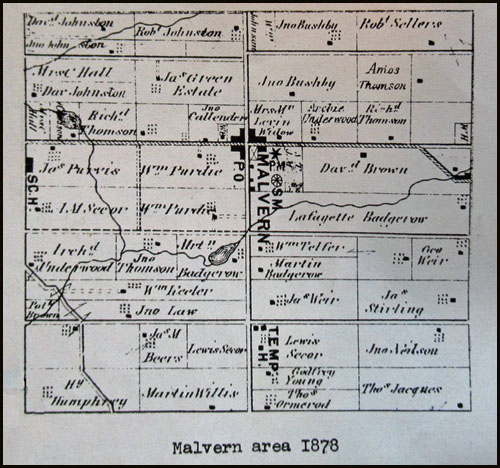 Davd Johnston
Robt Johnston
Jno Johnston
Johnston
Jno Bushby
Robt Sellers
Mrs C Hall
Dav Johnston
Jas Green
Estate
Jno Bushby
Amos
Thomson
Richd
Thomson
Jno
Callender
Mrs Wm
Levin
Widow
Archie
Underwood
Richd
Thomson
W H
Jas Purvis
Wm Purdie
P.O
MALVERN
P M
S M
Davd Brown
SC.H
I.M Secor
Wm Purdie
Lafayette Badgerow
Archd
Underwood
Jno
Thomson
Mrtn
Badgerow
Wm Telfer
Martin
Badgerow
Geo
Weir
Wm Keeler
Jno Law
Jas Weir
Jas
Stirling
Brown
Jas M
Beers
Lewis Secor
TEMP.
H.
Lewis
Secor
Jno Neilson
Hy
Humphrey
Martin Willis
Godfrey
Young
Thos
Ormerod
Thos Jacques
Malvern area 1878